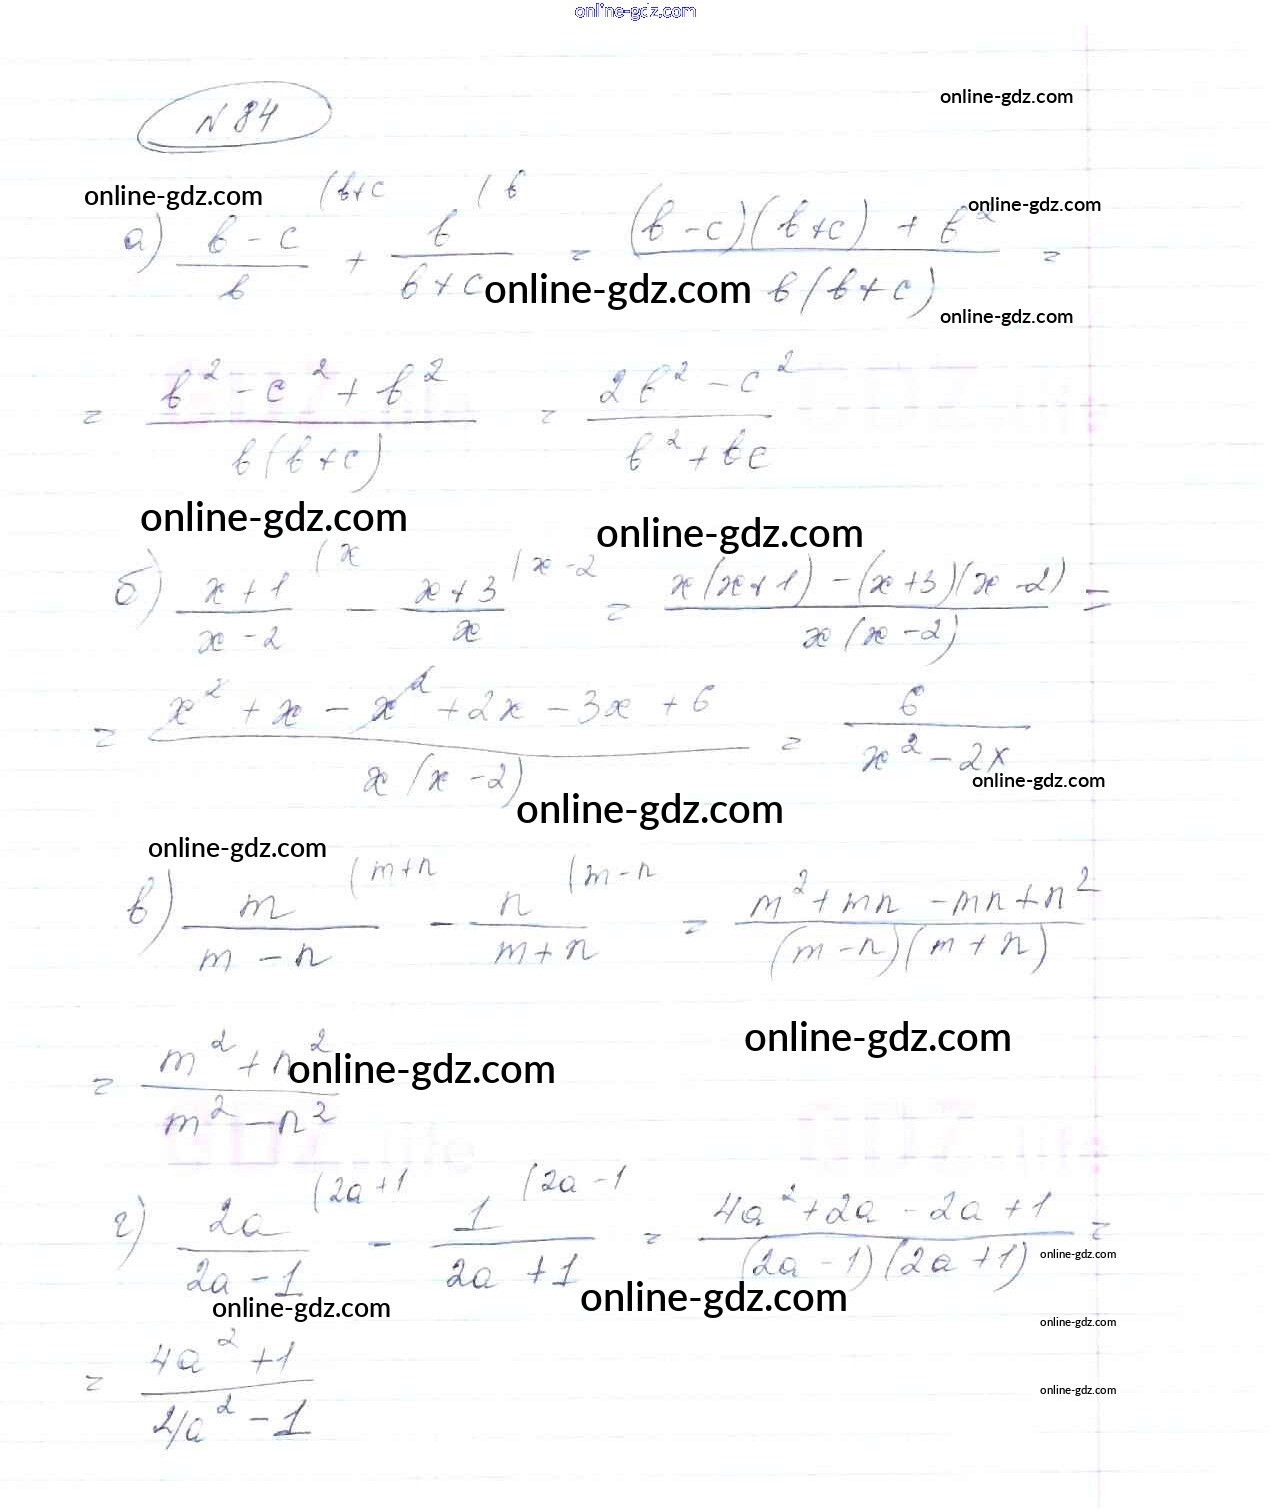 online-gdz.com
online-gdz.com
N 84
online-gdz.com
online-gdz.com
а) (b-c)/b (b+c + b/(b+c) (b = ((b-c)(b+c) + b²)/(b(b+c)) =
online-gdz.com
online-gdz.com
= (b² - c² + b²)/(b(b+c)) = (2b² - c²)/(b² + bc)
online-gdz.com
online-gdz.com
б) (x+1)/(x-2) (x - (x+3)/x (x-2 = (x(x+1) - (x+3)(x-2))/(x(x-2)) =
= (x² + x - x² + 2x - 3x + 6)/(x(x-2)) = 6/(x² - 2x)
online-gdz.com
online-gdz.com
online-gdz.com
в) m/(m-n) (m+n - n/(m+n) (m-n = (m² + mn - mn + n²)/((m-n)(m+n))
online-gdz.com
= (m² + n²)/(m² - n²)
online-gdz.com
г) 2a/(2a-1) (2a+1 - 1/(2a+1) (2a-1 = (4a² + 2a - 2a + 1)/((2a-1)(2a+1)) =
online-gdz.com
online-gdz.com
online-gdz.com
online-gdz.com
= (4a² + 1)/(4a² - 1)
online-gdz.com